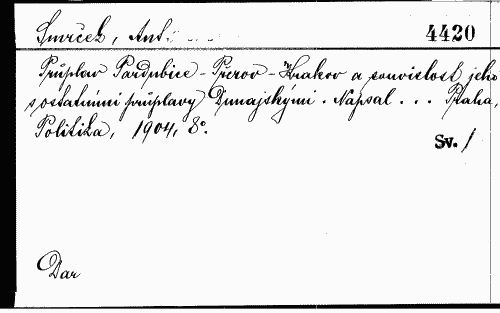 Smrček, Ant.
4420
Průplav Pardubice - Přerov - Krakov a souvislost jeho
s ostatními průplavy Dunajskými. Napsal ... Praha,
Politika, 1904, 8°.
Sv. /
Dar